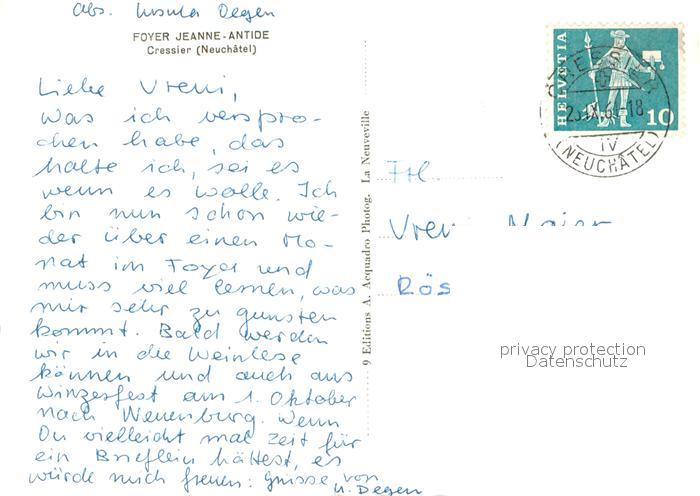 Abs. Ursula Degen
FOYER JEANNE-ANTIDE
Cressier (Neuchâtel)
Liebe Vreni,
Was ich verspro-
chen habe, das
halte ich, sei es
wenn es wolle. Ich
bin nun schon wie-
der über einen Mo-
nat im Foyer und
muss viel lernen, was
mir sehr zu gunsten
kommt. Bald werden
wir in die Weinlese
können und auch ans
Winzerfest am 1. Oktober
nach Neuenburg. Wenn
Du vielleicht mal Zeit für
ein Brieflein hättest, es
würde mich freuen: Grüsse von
U. Degen
9 Editions A. Acquadro Photog. La Neuveville
HELVETIA
10
CRESSIER
-18
IV
(NEUCHÂTEL)
Frl.
Vreni
Rös
privacy protection
Datenschutz